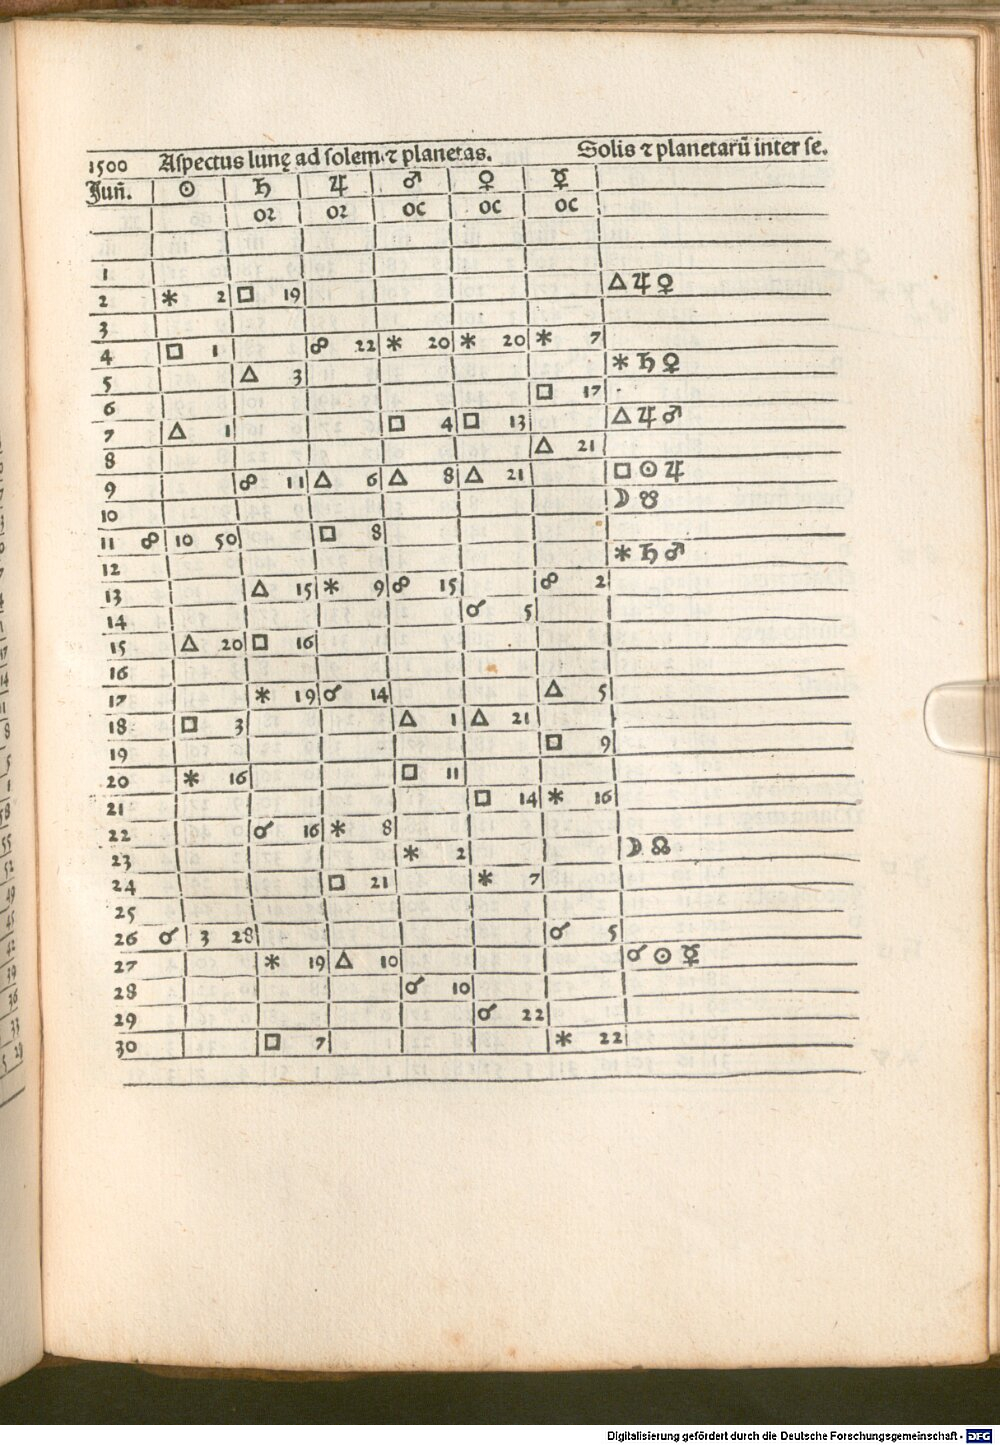 1500 Aspectus lunę ad solem ⁊ planetas. Solis ⁊ planetarū inter se.
Juñ. ☉ ♄ ♃ ♂ ♀ ☿
oꝛ oꝛ oc oc oc
1
2 ⚹ 2 □ 19 △ ♃ ♀
3
4 □ 1 ☍ 22 ⚹ 20 ⚹ 20 ⚹ 7
5 △ 3 ⚹ ♄ ♀
6 □ 17
7 △ 1 □ 4 □ 13 △ ♃ ♂
8 △ 21
9 ☍ 11 △ 6 △ 8 △ 21 □ ☉ ♃
10 ☽ ☋
11 ☍ 10 50 □ 8
12 ⚹ ♄ ♂
13 △ 15 ⚹ 9 ☍ 15 ☍ 2
14 ☌ 5
15 △ 20 □ 16
16
17 ⚹ 19 ☌ 14 △ 5
18 □ 3 △ 1 △ 21
19 □ 9
20 ⚹ 16 □ 11
21 □ 14 ⚹ 16
22 ☌ 16 ⚹ 8
23 ⚹ 2 ☽ ☊
24 □ 21 ⚹ 7
25
26 ☌ 3 28 ☌ 5
27 ⚹ 19 △ 10 ☌ ☉ ☿
28 ☌ 10
29 ☌ 22
30 □ 7 ⚹ 22
Digitalisierung gefördert durch die Deutsche Forschungsgemeinschaft - DFG